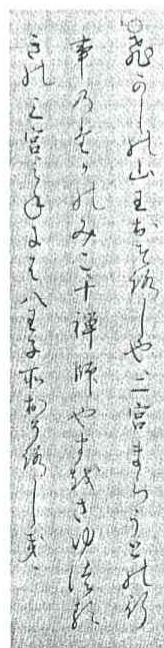 ひかしの山王おそろしや二宮まらうとの行
事のたかのみこ十禅師やまをさゆする
きの三宮みねには八王子そおそろしき